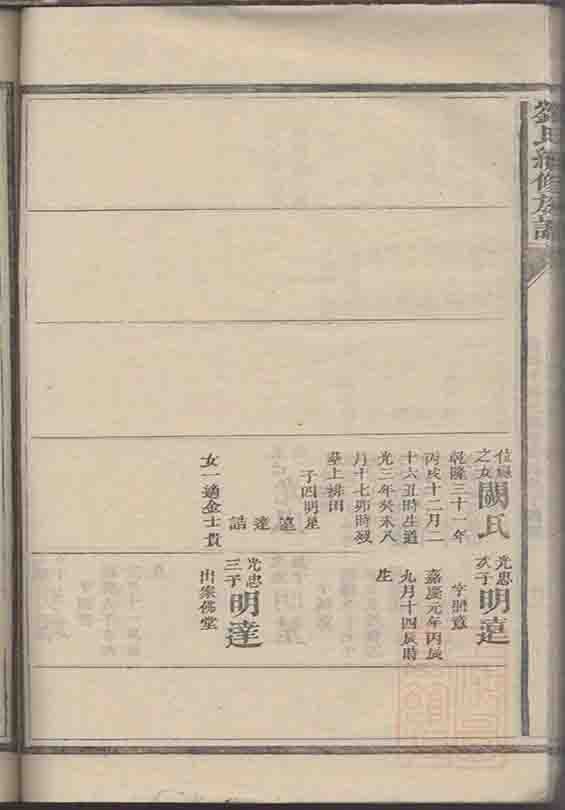 劉氏續修族譜
之女闕氏
乾隆三十一年
丙戌十二月二
十六丑時生道
光三年癸未八
月十七卯時歿
葬上排田
子四明星
達
詰
女一適金士貴
光忠
次子
明遠
嘉慶元年丙辰
九月十四辰時
生
光忠
三子
明達
出家佛堂